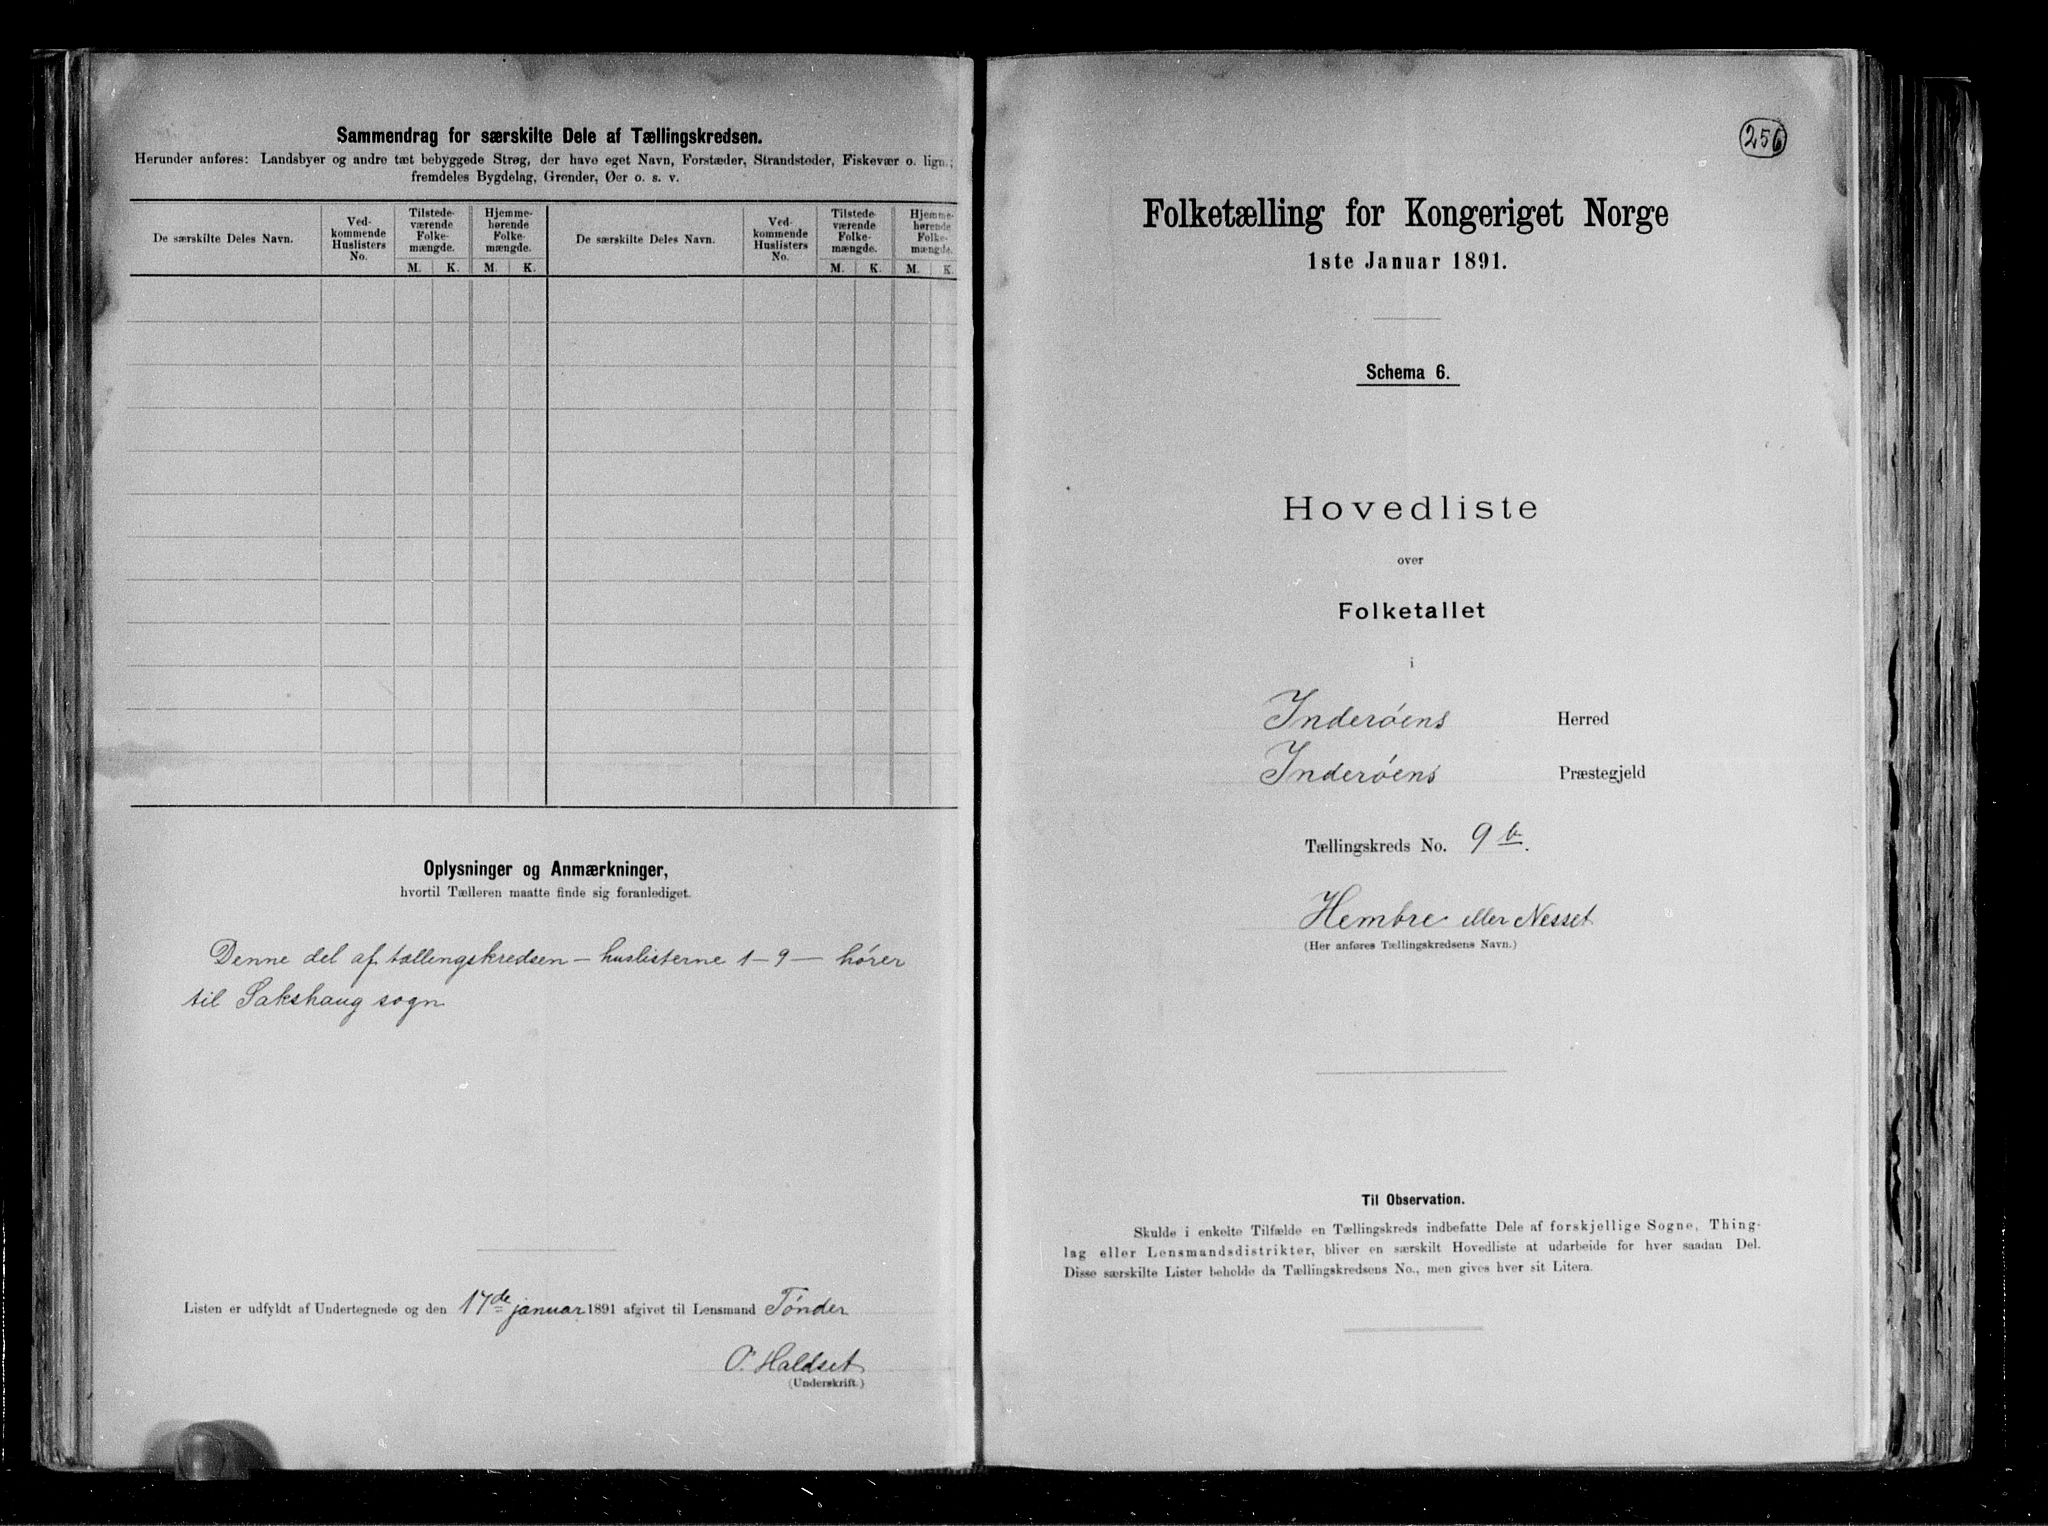 Sammendrag for særskilte Dele af Tællingskredsen.
Herunder anføres: Landsbyer og andre tæt bebyggede Strøg, der have eget Navn, Forstæder, Strandsteder, Fiskevær o. lign.;
fremdeles Bygdelag, Grender, Øer o. s. v.
De særskilte Deles Navn.
Ved-
kommende
Huslisters
No.
Tilstede-
værende
Folke-
mængde.
M. K.
Hjemme-
hørende
Folke-
mængde.
M. K.
De særskilte Deles Navn.
Ved-
kommende
Huslisters
No.
Tilstede-
værende
Folke-
mængde.
M. K.
Hjemme-
hørende
Folke-
mængde.
M. K.
Oplysninger og Anmærkninger,
hvortil Tælleren maatte finde sig foranlediget.
Denne del af tællengskredsen – huslisterne 1–9 – hører
til Sakshaug sogn
Listen er udfyldt af Undertegnede og den 17de januar 1891 afgivet til Lensmand Tønder
O. Haldset
(Underskrift.)
256
Folketælling for Kongeriget Norge
1ste Januar 1891.
Schema 6.
Hovedliste
over
Folketallet
i
Inderøens Herred
Inderøens Præstegjeld
Tællingskreds No. 9 b.
Hembre eller Nesset
(Her anføres Tællingskredsens Navn.)
Til Observation.
Skulde i enkelte Tilfælde en Tællingskreds indbefatte Dele af forskjellige Sogne, Thing-
lag eller Lensmandsdistrikter, bliver en særskilt Hovedliste at udarbeide for hver saadan Del.
Disse særskilte Lister beholde da Tællingskredsens No., men gives hver sit Litera.